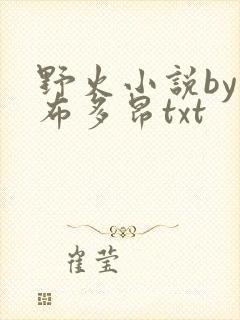 野火小説by
布多昂txt
崔莹